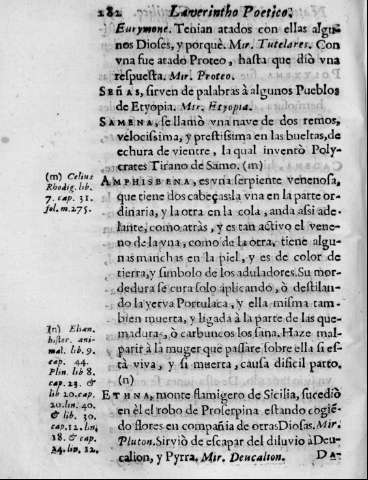 282 Laverintho Poetico.
Eurymone. Tenian atados con ellas algu-
nos Dioses, y porquè. Mir. Tutelares. Con
vna fue atado Proteo, hasta que diò vna
respuesta. Mir. Proteo.
SEÑAS, sirven de palabras à algunos Pueblos
de Etyopia. Mir. Etyopia.
SAMENA, se llamò vna nave de dos remos,
velocissima, y prestissima en las bueltas, de
echura de vientre, la qual inventò Poly-
crates Tirano de Samo. (m)
(m) Celius
Rhodig. lib.
7. cap. 31.
fol. m. 275.
AMPHISBENA, es vna serpiente venenosa,
que tiene dos cabeças la vna en la parte or-
dinaria, y la otra en la cola, anda assi ade-
lante, como atràs, y es tan activo el vene-
no de la vna, como de la otra, tiene algu-
nas manchas en la piel, y es de color de
tierra, y simbolo de los aduladores. Su mor-
dedura se cura solo aplicando, ò destilan-
do la yerva Portulaca, y ella misma tam-
bien muerta, y ligada à la parte de las que-
maduras, ò carbuncos los sana. Haze mal-
parir à la muger que passare sobre ella si es-
tà viva, y si muerta, causa dificil parto.
(n)
(n) Elian.
hister. ani-
mal. lib. 9.
cap. 44.
Plin. lib 8.
cap. 23. &
lib 20. cap.
20. lin. 40.
& lib. 30.
cap. 12. lin.
18. & cap.
34. lin. 12.
ETHNA, monte flamigero de Sicilia, sucediò
en èl el robo de Proserpina estando cogiē-
do flores en compañia de otras Diosas. Mir.
Pluton. Sirviò de escapar del diluvio à Deu-
calion, y Pyrra. Mir. Deucalion. DA-